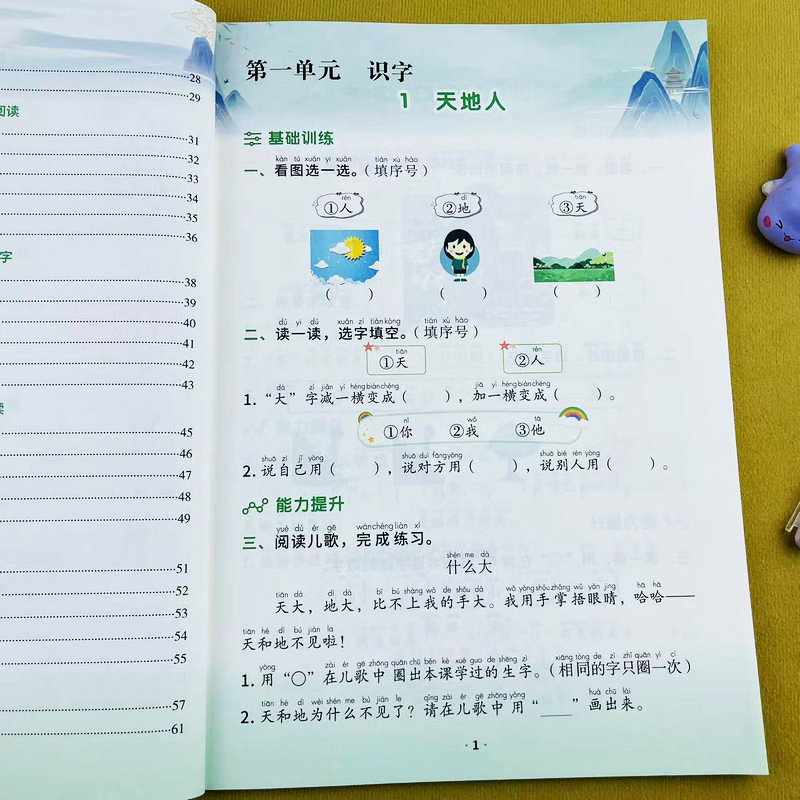 28
29
阅读
31
32
33
34
35
36
字
38
39
40
41
42
43
读
45
46
47
48
49
51
52
53
54
55
57
61
第一单元 识字
1 天地人
基础训练
kàn tú xuǎn yi xuǎn tián xù hào
一、看图选一选。（填序号）
rén dì tiān
①人 ②地 ③天
（ ） （ ） （ ）
dú yi dú xuǎn zì tián kòng tián xù hào
二、读一读，选字填空。（填序号）
tiān rén
①天 ②人
dà zì jiǎn yì héng biàn chéng jiā yì héng biàn chéng
1. “大”字减一横变成（ ），加一横变成（ ）。
nǐ wǒ tā
①你 ②我 ③他
shuō zì jǐ yòng shuō duì fāng yòng shuō bié rén yòng
2. 说自己用（ ），说对方用（ ），说别人用（ ）。
能力提升
yuè dú ér gē wán chéng liàn xí
三、阅读儿歌，完成练习。
shén me dà
什么大
tiān dà dì dà bǐ bú shàng wǒ de shǒu dà wǒ yòng shǒu zhǎng wǔ yǎn jing hā hā
天大，地大，比不上我的手大。我用手掌捂眼睛，哈哈——
tiān hé dì bú jiàn la
天和地不见啦！
yòng zài ér gē zhōng quān chū běn kè xué guo de shēng zì xiāng tóng de zì zhǐ quān yí cì
1. 用“○”在儿歌中圈出本课学过的生字。（相同的字只圈一次）
tiān hé dì wèi shén me bú jiàn le qǐng zài ér gē zhōng yòng huà chū lái
2. 天和地为什么不见了？请在儿歌中用“____”画出来。
· 1 ·